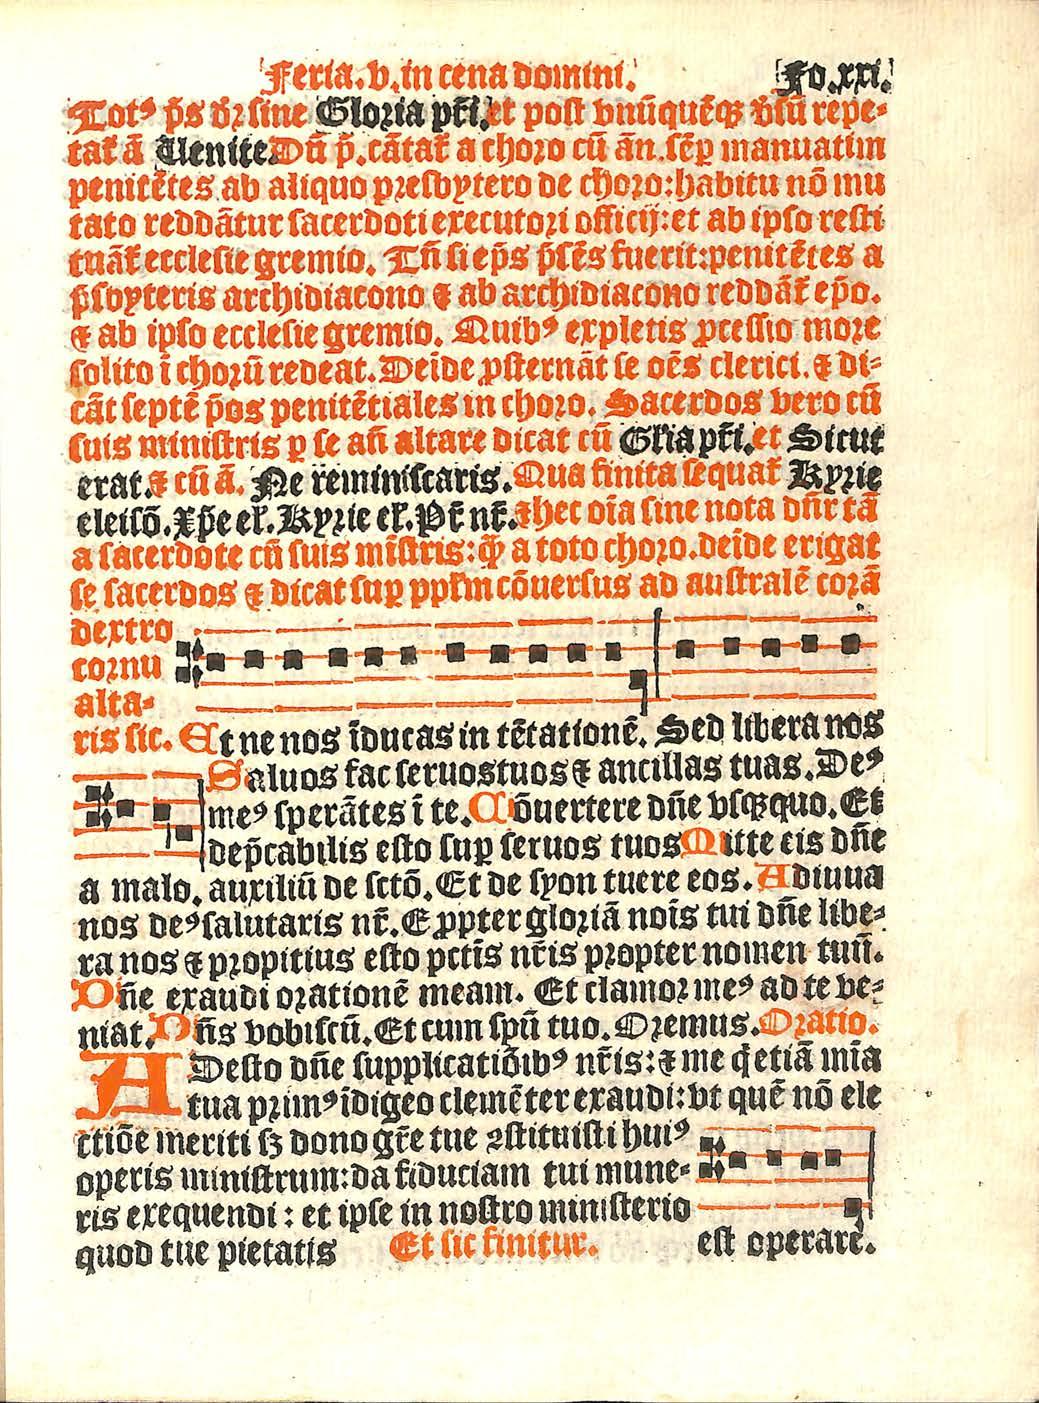 Feria.v.in cena domini. Fo.xxi.
Totꝰ p̄s dr̄ sine Gloria pr̄i. et post vnūquēqꝫ v̄sū repe-
tat̄ ā Uenite. Dū p̄.cātat̄ a choro cū ān.sēp manuatim
penitētes ab aliquo presbytero de choro: habitu nō mu
tato reddātur sacerdoti executori officij: et ab ipso resti
tuāt̄ ecclesie gremio. Tn̄ si ep̄s p̄sēs fuerit: penitētes a
p̄sbyteris archidiacono ⁊ ab archidiacono reddāt̄ ep̄o.
⁊ ab ipso ecclesie gremio. Quibꝰ expletis ꝓcessio more
solito ī chorū redeat. Deīde ꝓsternāt se oēs clerici. ⁊ di-
cāt septē p̄os penitētiales in choro. Sacerdos vero cū
suis ministris ꝑ se an̄ altare dicat cū Gl̄ia pr̄i. et Sicut
erat. ⁊ cū ā. Ne reminiscaris. Qua finita sequat̄ Kyrie
eleisō. Xp̄e el̄. Kyrie el̄. Pr̄ nr̄. ⁊ hec oīa sine nota dn̄r tā
a sacerdote cū suis mīstris: q̄ a toto choro. deīde erigat
se sacerdos ⁊ dicat suꝑ pp̄lm cōuersus ad australē corā
dextro
cornu
alta-
ris sic. Et ne nos īducas in tētationē. Sed libera nos
Saluos fac seruos tuos ⁊ ancillas tuas. Deꝰ
meꝰ sperātes ī te. Cōuertere dn̄e vsqꝫquo. Et
dep̄cabilis esto suꝑ seruos tuos Mitte eis dn̄e
a malo. auxiliū de sctō. Et de syon tuere eos. Adiuua
nos deꝰ salutaris nr̄. E ꝓpter gloriā noīs tui dn̄e libe-
ra nos ⁊ propitius esto pctīs nr̄is propter nomen tuū.
Dn̄e exaudi orationē meam. Et clamor meꝰ ad te ve-
niat. Dn̄s vobiscū. Et cum spū tuo. Oremus. Oratio.
ADesto dn̄e supplicatiōibꝰ nr̄is: ⁊ me q̄ etiā mīa
tua primꝰ īdigeo clemēter exaudi: vt quē nō ele
ctiōe meriti sꝫ dono gr̄e tue ꝯstituisti huiꝰ
operis ministrum: da fiduciam tui mune-
ris exequendi: et ipse in nostro ministerio
quod tue pietatis Et sic finitur. est operare.